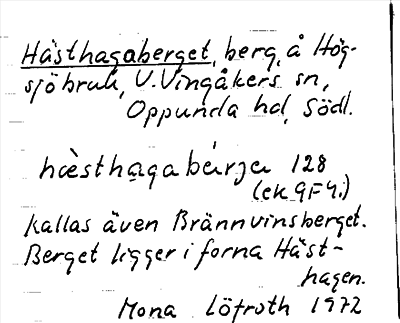 Hästhagaberget, berg, å Hög-
sjöbruk, V. Vingåkers sn,
Oppunda hd, Södl.
hæ̀sthaga bärja 128
(ek 9F4.)
kallas även Brännvinsberget.
Berget ligger i forna Häst-
hagen.
Mona Löfroth 1972